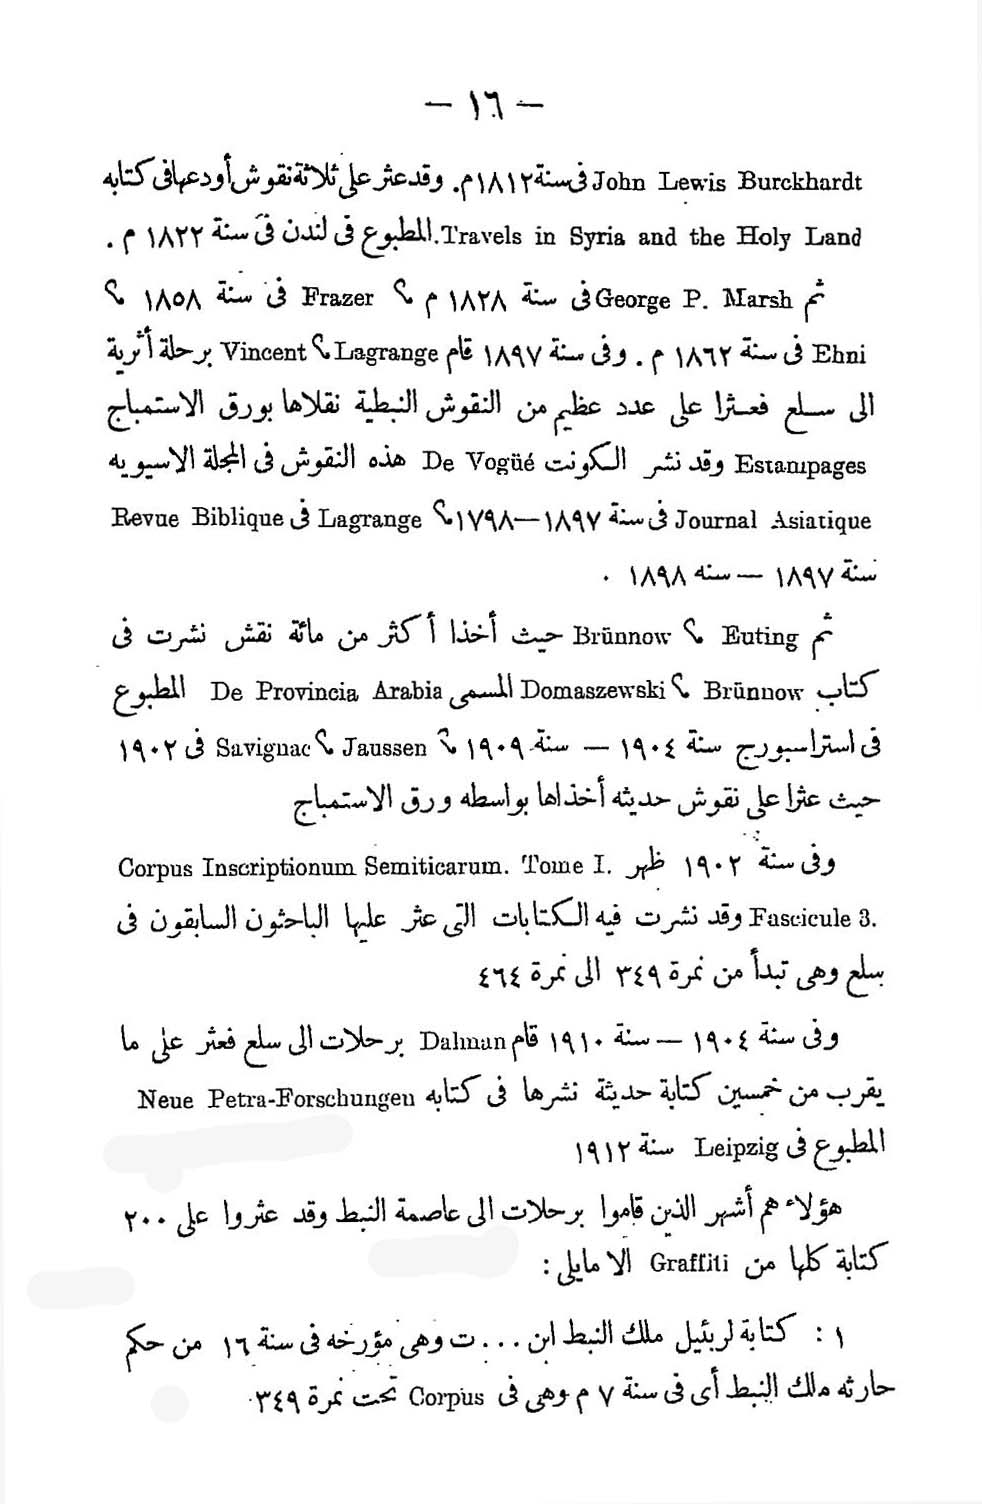 — ١٦ —
John Lewis Burckhardt فى سنة ١٨١٢م. وقد عثر على ثلاثة نقوش أودعها فى كتابه
Travels in Syria and the Holy Land. المطبوع فى لندن فى سنة ١٨٢٢ م .
ثم George P. Marsh فى سنة ١٨٢٨ م ؟ Frazer فى سنة ١٨٥٨ ؟
Ehni فى سنة ١٨٦٢ م . وفى سنة ١٨٩٧ قام Lagrange ؟ Vincent برحلة أثرية
الى سلع فعثرا على عدد عظيم من النقوش النبطية نقلاها بورق الاستمباج
Estampages وقد نشر الكونت De Vogüé هذه النقوش فى المجلة الاسيويه
Journal Asiatique فى سنة ١٨٩٧—١٧٩٨ ؟ Lagrange فى Revue Biblique
سنة ١٨٩٧ — سنه ١٨٩٨ .
ثم Euting ؟ Brünnow حيث أخذا أكثر من مائة نقش نشرت فى
كتاب Brünnow ؟ Domaszewski المسمى De Provincia Arabia المطبوع
فى استراسبورج سنة ١٩٠٤ — سنة ١٩٠٩ ؟ Jaussen ؟ Savignac فى ١٩٠٢
حيث عثرا على نقوش حديثه أخذاها بواسطه ورق الاستمباج
وفى سنة ١٩٠٢ ظهر Corpus Inscriptionum Semiticarum. Tome I.
Fascicule 3. وقد نشرت فيه الكتابات التى عثر عليها الباحثون السابقون فى
سلع وهى تبدأ من نمرة ٣٤٩ الى نمرة ٤٦٤
وفى سنة ١٩٠٤ — سنة ١٩١٠ قام Dalman برحلات الى سلع فعثر على ما
يقرب من خمسين كتابة حديثة نشرها فى كتابه Neue Petra-Forschungen
المطبوع فى Leipzig سنة ١٩١٢
هؤلاء هم أشهر الذين قاموا برحلات الى عاصمة النبط وقد عثروا على ٢٠٠
كتابة كلها من Graffiti الا مايلى :
١ : كتابة لربئيل ملك النبط ابن ... ت وهى مؤرخه فى سنة ١٦ من حكم
حارثه ملك النبط أى فى سنة ٧ م وهى فى Corpus تحت نمرة ٣٤٩.